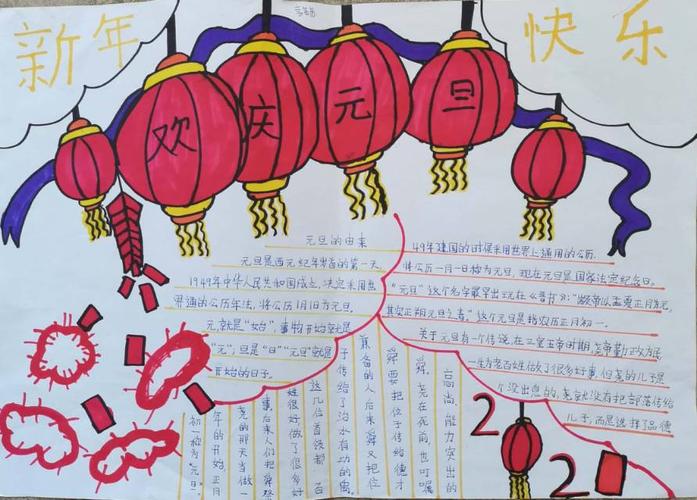 新年
快乐
欢庆元旦
元旦的由来
元旦是西元纪年岁首的第一天
1949年中华人民共和国成立，决定采用世
界通的公历年法，将公历1月1日为元旦，
元就是"始"，事物开始就是
"元"；旦是"日""元旦"就是
开始的日子。
49年建国的时候采用世界上通用的公历，
将公历一月一日称为元旦，现在元旦是国家法定纪念日。
"元旦"这个名字最早出现在《晋书》："颛帝以孟夏正月为元，
其实正朔元旦之春。"这个元旦是指农历正月初一。
关于元旦有一个传说，在三皇五帝时期，尧帝勤政为民
一生为老百姓做了很多好事，但尧的儿子是
个没出息的，尧就没有把部落传给
儿子，而是选择了品德
高尚、能力突出的
舜。尧在死前也叮嘱
舜要把位子传给德才
兼备的人后来舜又把位
子传给了治水有功的禹。
这几位首领都 百
姓很好，做了很多好
事后来人们把舜祭
尧的那天当做一
年的开始
初一称为"元旦"。
2
2